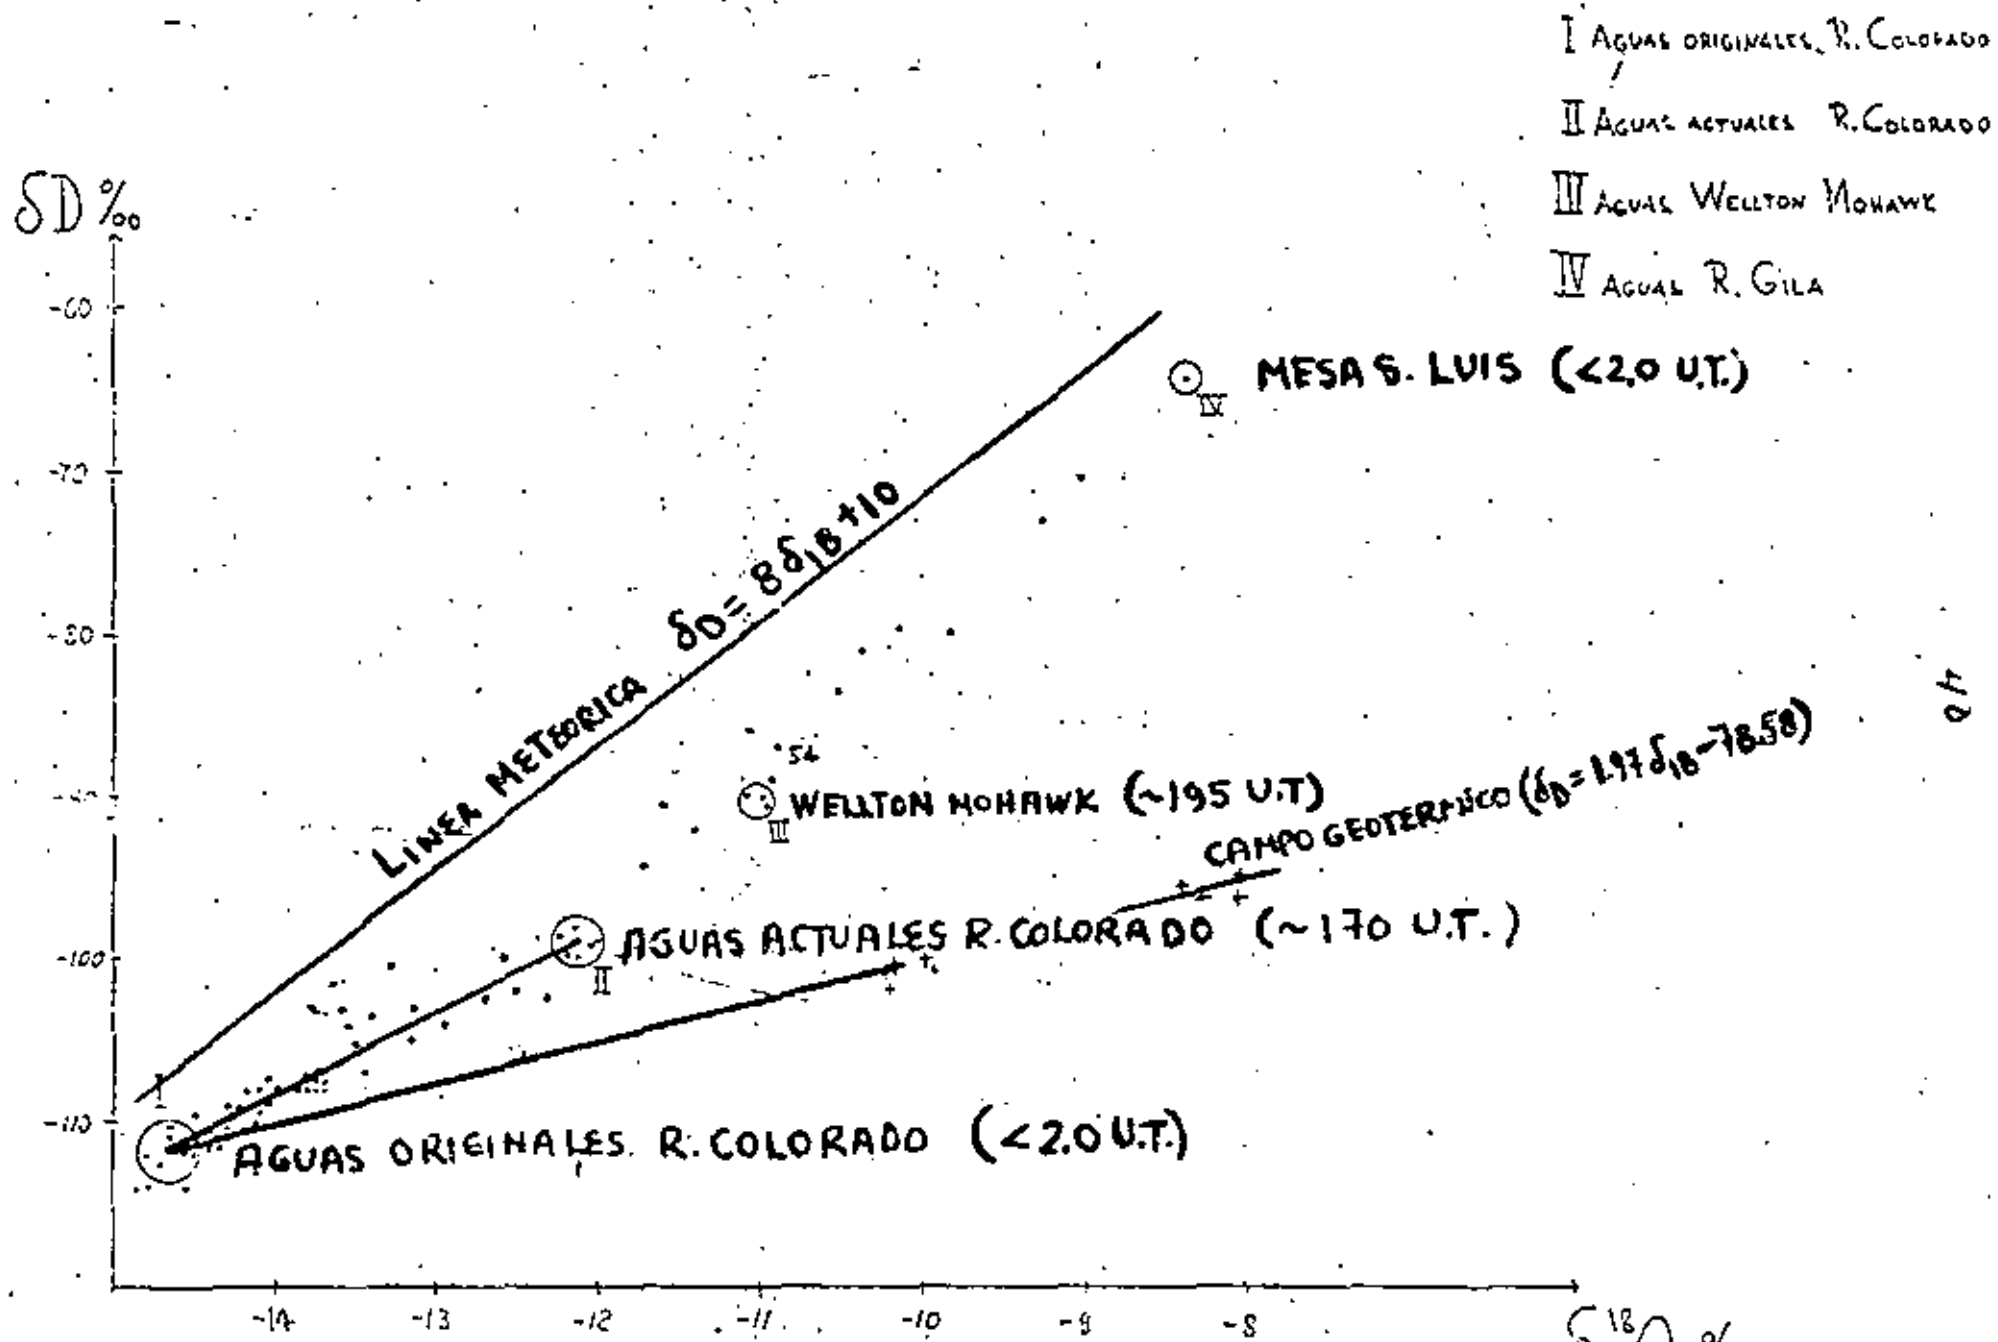 I AGUAS ORIGINALES, R. COLORADO
II AGUAS ACTUALES R. COLORADO
III AGUAS WELLTON MOHAWK
IV AGUAS R. GILA
δD ‰
-60
-70
-80
-90
-100
-110
MESA S. LUIS (<2.0 U.T.)
IV
LINEA METEORICA δD = 8 δ18 + 10
54
WELLTON MOHAWK (~195 U.T)
III
CAMPO GEOTERMICO (δD = 1.97 δ18 - 78.58)
AGUAS ACTUALES R. COLORADO (~170 U.T.)
II
I
AGUAS ORIGINALES R. COLORADO (<2.0 U.T.)
-14 -13 -12 -11 -10 -9 -8
δ18O %